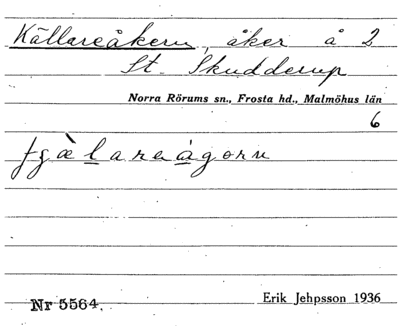 Källareåkern, åker å 2
St. Skudderup
Norra Rörums sn., Frosta hd., Malmöhus län
6
Nr 5564.
Erik Jehpsson 1936